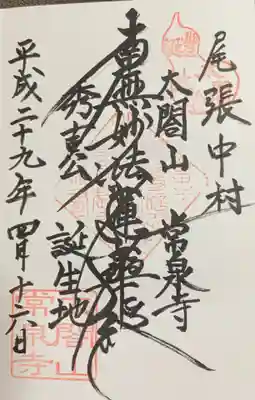 尾張中村
太閤山 常泉寺
南無妙法蓮華経
秀吉公 誕生地
平成二十九年 四月十六日
太閤山
常泉寺